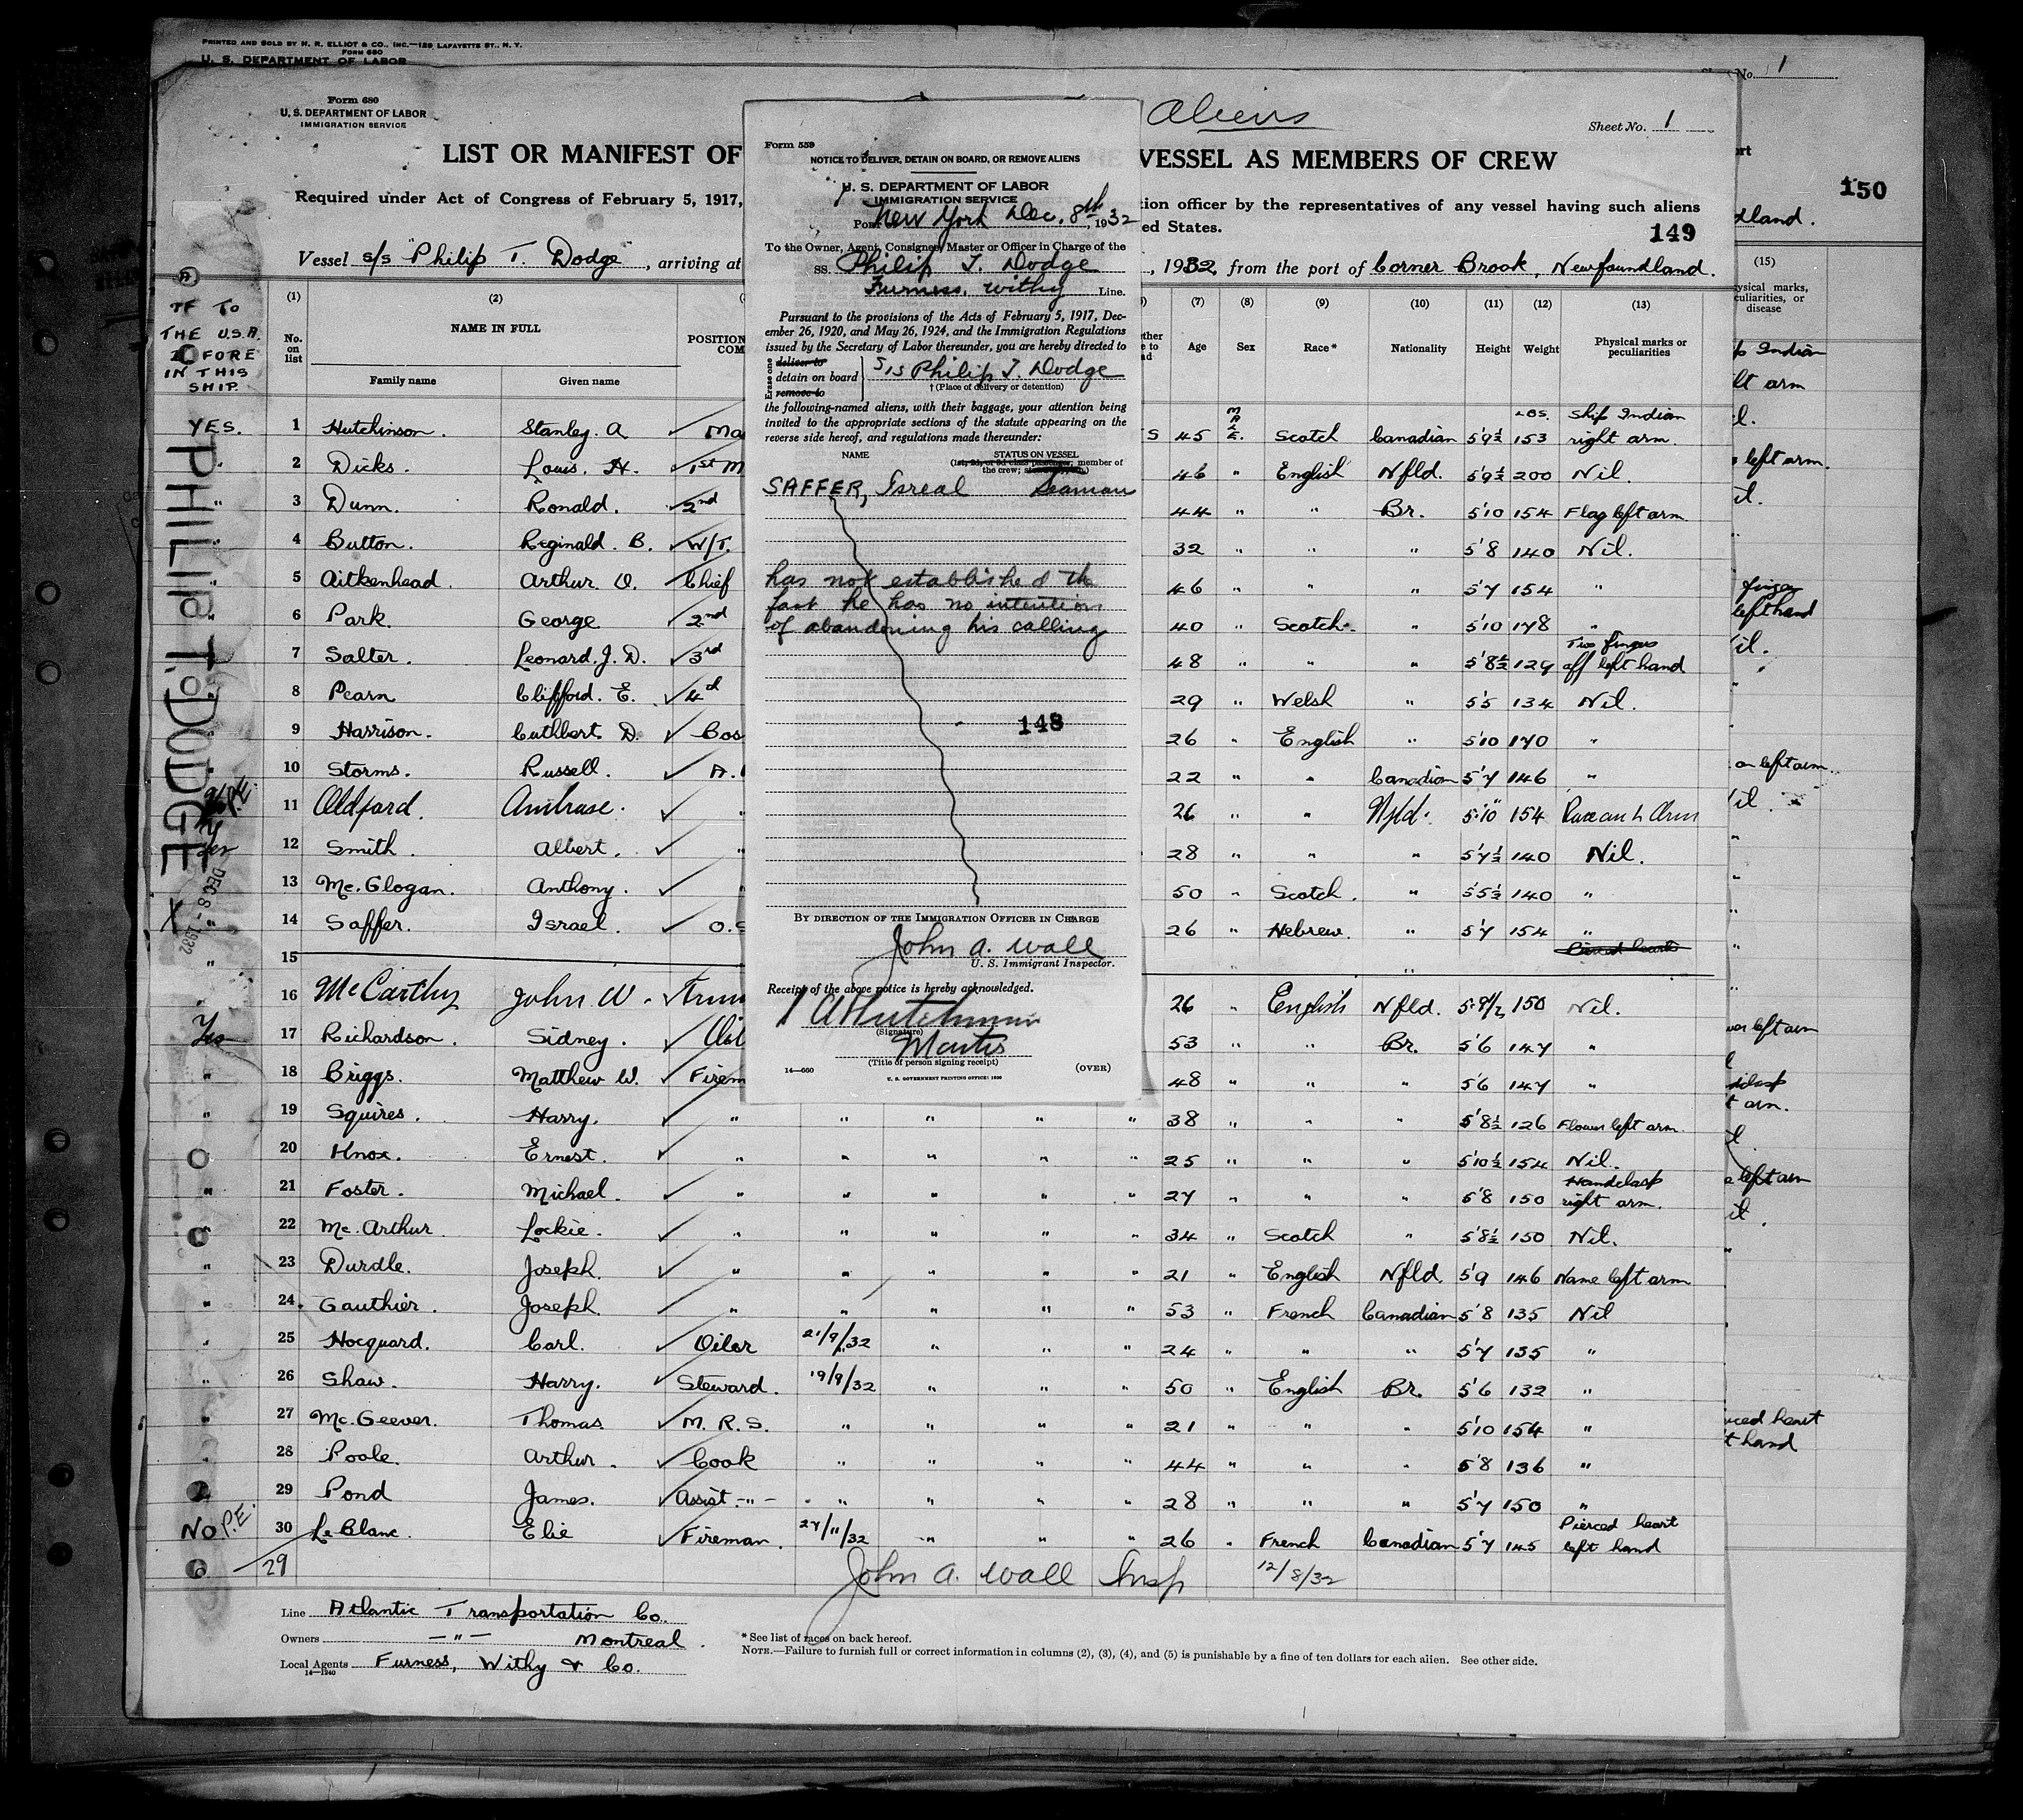 PRINTED AND SOLD BY H. R. ELLIOT & CO., INC.—129 LAFAYETTE ST., N. Y.
FORM 680
U. S. DEPARTMENT OF LABOR
No. 1
150
dland.
(15)
ysical marks,
culiarities, or
disease
Form 680
U. S. DEPARTMENT OF LABOR
IMMIGRATION SERVICE
Aliens
Sheet No. 1
LIST OR MANIFEST OF
VESSEL AS MEMBERS OF CREW
Required under Act of Congress of February 5, 1917,
tion officer by the representatives of any vessel having such aliens
ed States.
149
Vessel s/s "Philip T. Dodge", arriving at
, 1932, from the port of Corner Brook, Newfoundland.
TO
THE U.S.A.
IN THIS
SHIP.
PHILIP T. DODGE
DEC 8 - 1932
(1) (2) (7) (8) (9) (10) (11) (12) (13)
No. on list NAME IN FULL POSITION Age Sex Race* Nationality Height Weight Physical marks or peculiarities
Family name Given name
YES. 1 Hutchinson. Stanley. A Ma S 45 MALE. Scotch Canadian 5'9½ 153 LBS. Ship Indian right arm.
" 2 Dicks. Louis. H. 1st M 46 " English Nfld. 5'9½ 200 Nil.
" 3 Dunn. Ronald. 2nd 44 " " Br. 5'10 154 Flag left arm
4 Button. Reginald. B. W/T. 32 " " " 5'8 140 Nil.
" 5 Aitkenhead. Arthur. O. Chief 46 " " " 5'7 154 "
" 6 Park. George 2nd 40 " Scotch. " 5'10 178 "
7 Salter. Leonard. J. D. 3rd 48 " " " 5'8½ 129 Two fingers off left hand
8 Pearn Clifford. E. 4th 29 " Welsh " 5'5 134 Nil.
9 Harrison. Cuthbert D. Bos 26 " English " 5'10 170 "
10 Storms. Russell. A. 22 " " Canadian 5'7 146 "
11 Oldford. Ambrose. " 26 " " Nfld. 5'10" 154
Yes 12 Smith. Albert. " 28 " " " 5'7½ 140 Nil.
13 Mc. Glogan. Anthony. " 50 " Scotch. " 5'5½ 140 "
X " 14 Saffer. Israel. O.S 26 " Hebrew. " 5'7 154 "
" 15
" 16 McCarthy John W. Trim 26 " English Nfld. 5'8½ 150 Nil.
Yes 17 Richardson. Sidney. Oil 53 " " Br. 5'6 147 "
" 18 Briggs. Matthew W. Firem 48 " " " 5'6 147 "
" 19 Squires. Harry. " " " " " 38 " " " 5'8½ 126 Flower left arm.
20 Knox. Ernest. " " " " " 25 " " " 5'10½ 154 Nil.
" 21 Foster. Michael. " " " " " 27 " " " 5'8 150 Handclasp right arm.
" 22 Mc. Arthur. Lockie. " " " " " 34 " Scotch " 5'8½ 150 Nil.
" 23 Durdle. Joseph. " " " " " 21 " English Nfld 5'9 146 Name left arm
" 24. Gauthier. Joseph. " " " " " 53 " French Canadian 5'8 135 Nil
" 25 Hocquard. Carl. Oiler 21/9/32 " " " 24 " " " 5'7 135 "
" 26 Shaw. Harry. Steward. 19/9/32 " " " 50 " English Br. 5'6 132 "
" 27 Mc. Geever. Thomas M. R. S. " " " " 21 " " " 5'10 154 "
" 28 Poole. Arthur. Cook " " " " 44 " " " 5'8 136 "
29 Pond James. Assist. -"- " " " " 28 " " " 5'7 150 "
No P.E. 30 Le Blanc. Elie Fireman. 27/11/32 " " " 26 " French Canadian 5'7 145 Pierced heart left hand
29 John A. Wall Insp 12/8/32
Line Atlantic Transportation Co.
Owners —"— Montreal.
Local Agents Furness, Withy & Co.
14—1240
* See list of races on back hereof.
NOTE.—Failure to furnish full or correct information in columns (2), (3), (4), and (5) is punishable by a fine of ten dollars for each alien. See other side.
Form 559
NOTICE TO DELIVER, DETAIN ON BOARD, OR REMOVE ALIENS
U. S. DEPARTMENT OF LABOR
IMMIGRATION SERVICE
Port New York Dec. 8th, 1932
To the Owner, Agent, Consignee, Master or Officer in Charge of the
SS. Philip T. Dodge
Furness, Withy Line.
Pursuant to the provisions of the Acts of February 5, 1917, Dec-
ember 26, 1920, and May 26, 1924, and the Immigration Regulations
issued by the Secretary of Labor thereunder, you are hereby directed to
Erase one
deliver to
detain on board S/S Philip T. Dodge
remove to † (Place of delivery or detention)
the following-named aliens, with their baggage, your attention being
invited to the appropriate sections of the statute appearing on the
reverse side hereof, and regulations made thereunder:
NAME STATUS ON VESSEL
(1st, 2d, or 3d class passenger, member of
the crew;
SAFFER, Isreal Seaman
has not established the
fact he has no intention
of abandoning his calling
148
BY DIRECTION OF THE IMMIGRATION OFFICER IN CHARGE
John A. Wall
U. S. Immigrant Inspector.
Receipt of the above notice is hereby acknowledged.
(Signature)
Master
(Title of person signing receipt)
14—660 (OVER)
U. S. GOVERNMENT PRINTING OFFICE: 1930
Indian
arm
left arm.
finger
left hand
on left arm.
left arm
arm.
left arm
heart
hand